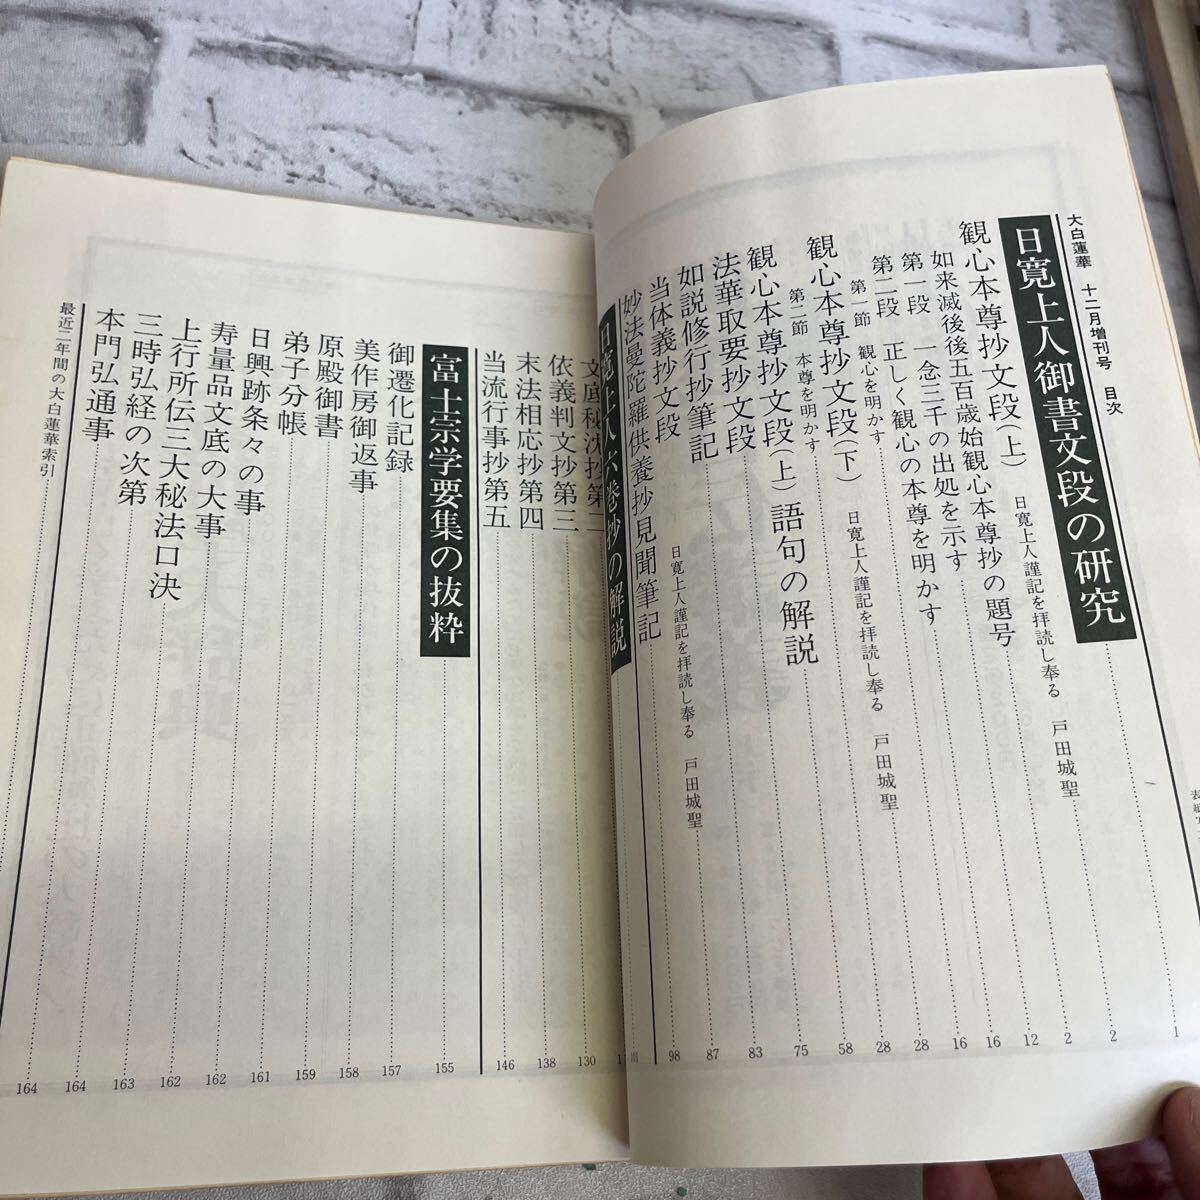 大白蓮華 十二月増刊号 目次
日寛上人御書文段の研究 1
観心本尊抄文段(上) 日寛上人謹記を拝読し奉る 戸田城聖 2
如来滅後後五百歳始観心本尊抄の題号 2
第一段 一念三千の出処を示す 12
第二段 正しく観心の本尊を明かす 16
第一節 観心を明かす 16
第二節 本尊を明かす 28
観心本尊抄文段(下) 日寛上人謹記を拝読し奉る 戸田城聖 28
観心本尊抄文段(上)語句の解説 58
法華取要抄文段 75
如説修行抄筆記 83
当体義抄文段 87
妙法曼陀羅供養抄見聞筆記 日寛上人謹記を拝読し奉る 戸田城聖 98
日寛上人六巻抄の解説 101
文底秘沈抄第二
依義判文抄第三 130
末法相応抄第四 138
当流行事抄第五 146
富士宗学要集の抜粋 155
御遷化記録 157
美作房御返事 158
原殿御書 159
弟子分帳
日興跡条々の事 161
寿量品文底の大事 162
上行所伝三大秘法口決 162
三時弘経の次第 163
本門弘通事 164
最近二年間の大白蓮華索引 164